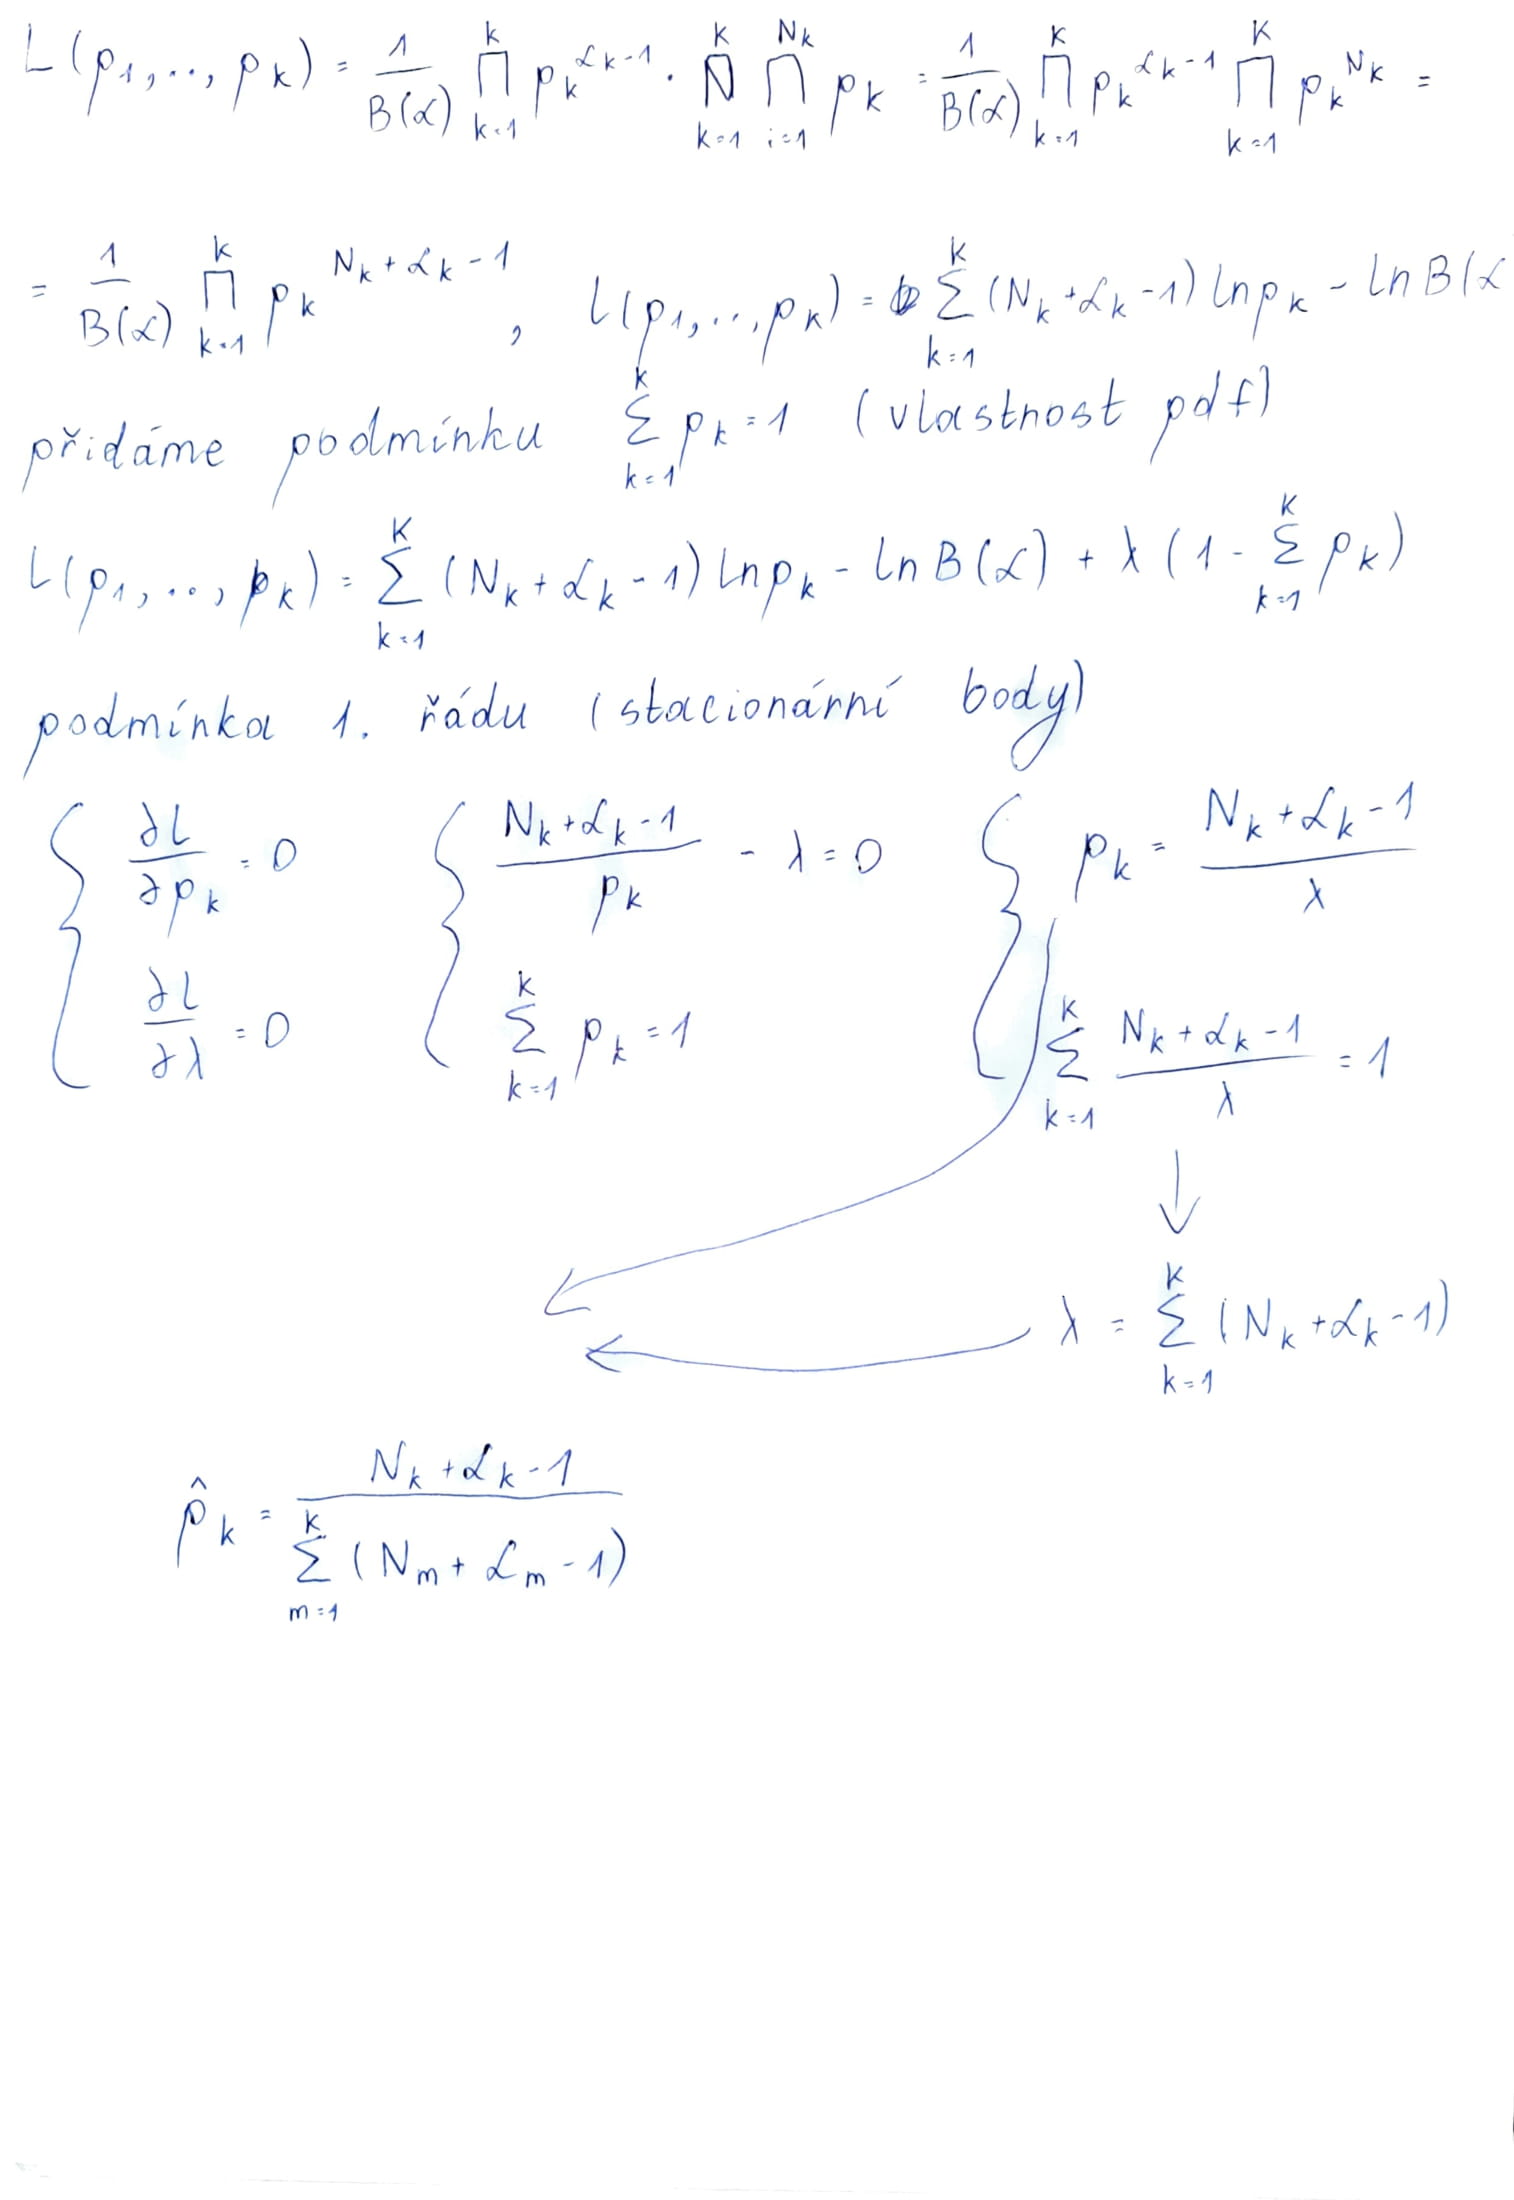 L(p₁,..,p_k) = 1/B(α) ∏_{k=1}^{K} p_k^{α_k-1} · ∏_{k=1}^{K} ∏_{i=1}^{N_k} p_k = 1/B(α) ∏_{k=1}^{K} p_k^{α_k-1} ∏_{k=1}^{K} p_k^{N_k} =
= 1/B(α) ∏_{k=1}^{K} p_k^{N_k+α_k-1} , l(p₁,..,p_k) = ∑_{k=1}^{K} (N_k+α_k-1) ln p_k - ln B(α
přidáme podmínku ∑_{k=1}^{K} p_k = 1 (vlastnost pdf)
L(p₁,..,p_k) = ∑_{k=1}^{K} (N_k+α_k-1) ln p_k - ln B(α) + λ (1 - ∑_{k=1}^{K} p_k)
podmínka 1. řádu (stacionární body)
{ ∂L/∂p_k = 0 { (N_k+α_k-1)/p_k - λ = 0 { p_k = (N_k+α_k-1)/λ
∂L/∂λ = 0 ∑_{k=1}^{K} p_k = 1 ∑_{k=1}^{K} (N_k+α_k-1)/λ = 1
↓
λ = ∑_{k=1}^{K} (N_k+α_k-1)
p̂_k = (N_k+α_k-1) / ∑_{m=1}^{K} (N_m+α_m-1)